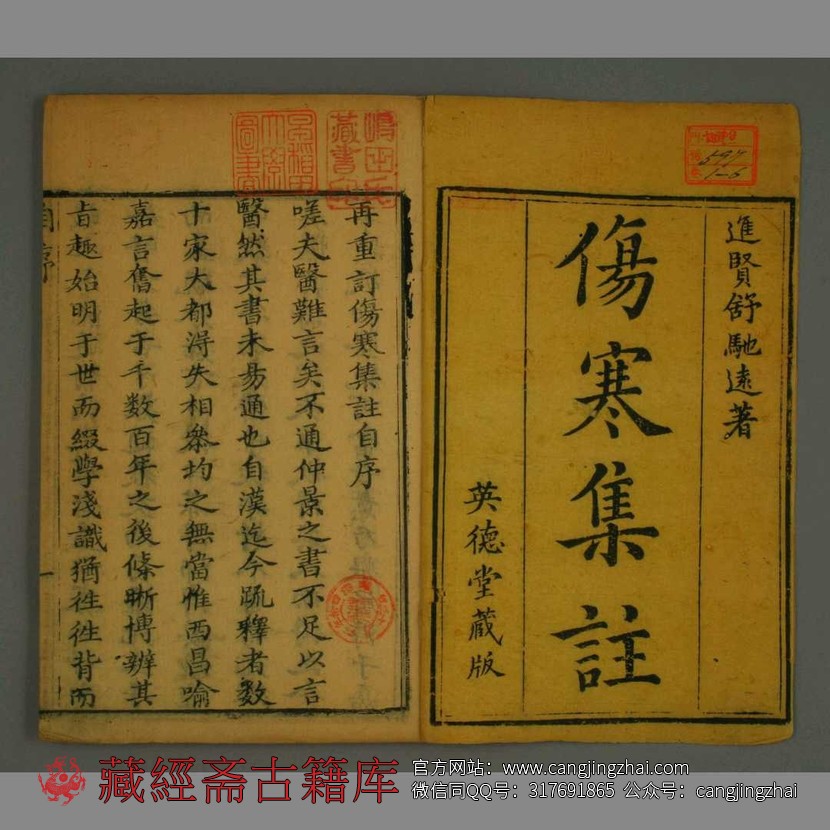 進賢舒馳遠著
傷寒集註
英德堂蔵版
597
1-6
再重訂傷寒集註自序
嗟夫醫難言矣不通仲景之書不足以言
醫然其書未易通也自漢迄今疏釋者数
十家大都淂失相叅均之無當惟西昌喻
嘉言奮起于千数百年之後條晰博辨其
旨趣始明于世而綴學淺識猶徃徃背而
自序
一
早稲田
大學
圖書
藏書
藏經斋古籍库
官方网站：www.cangjingzhai.com
微信同QQ号：317691865 公众号：cangjingzhai